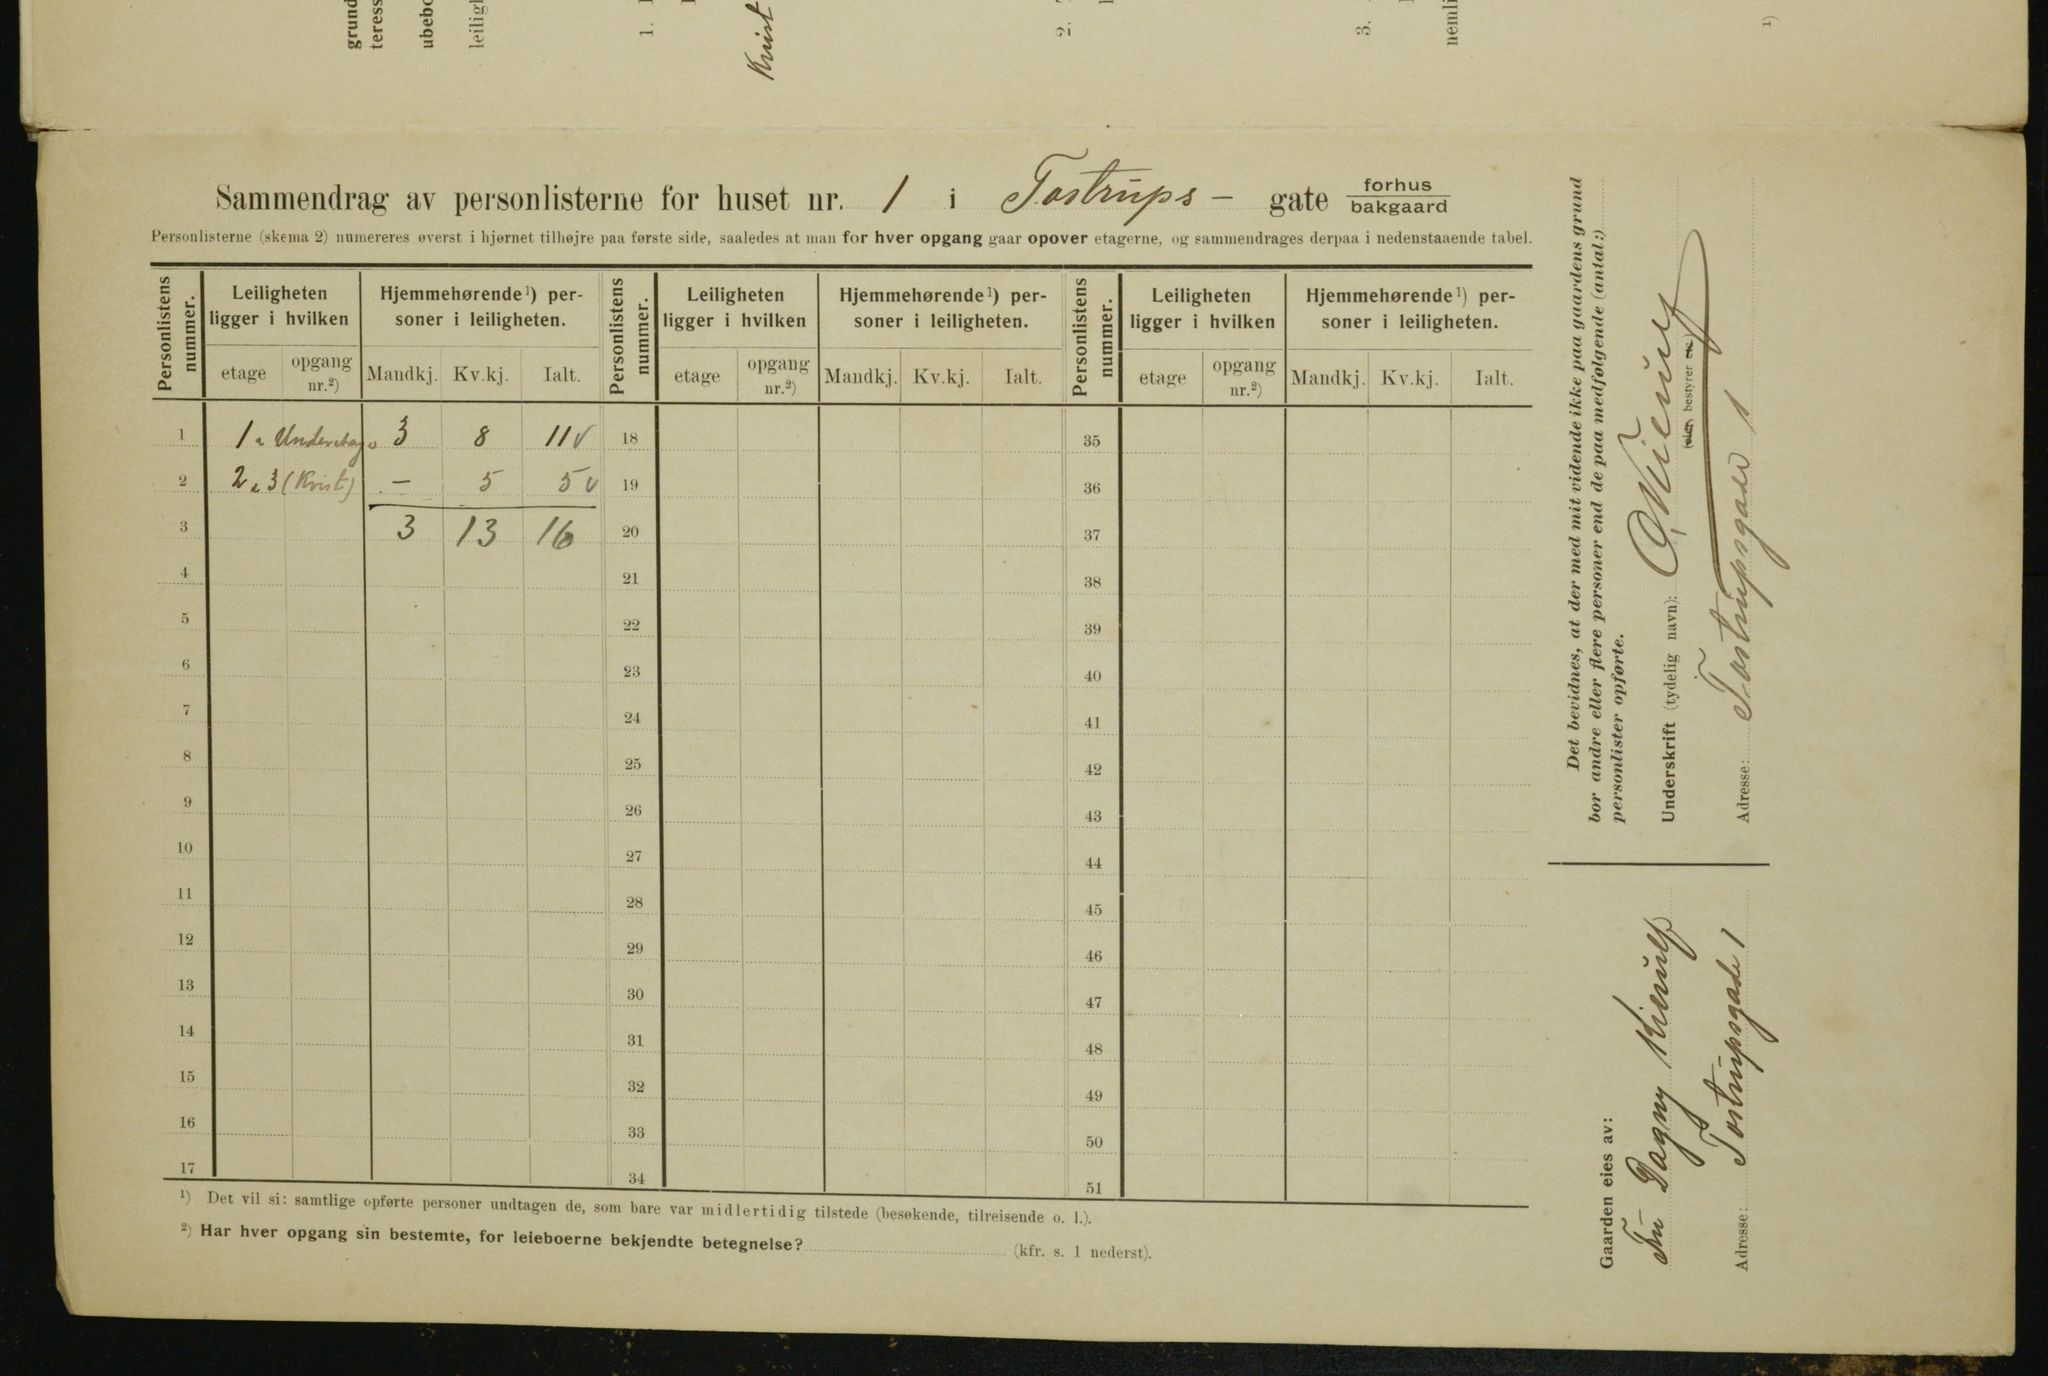 grund
teress
ubebo
leiligh
1.
Kvist
2.
3.
nemli
1)
Sammendrag av personlisterne for huset nr. 1 i Tostrups- gate forhus bakgaard
Personlisterne (skema 2) numereres øverst i hjørnet tilhøjre paa første side, saaledes at man for hver opgang gaar opover etagerne, og sammendrages derpaa i nedenstaaende tabel.
Personlistens nummer. Leiligheten ligger i hvilken Hjemmehørende ¹) personer i leiligheten. Personlistens nummer. Leiligheten ligger i hvilken Hjemmehørende ¹) personer i leiligheten. Personlistens nummer. Leiligheten ligger i hvilken Hjemmehørende ¹) personer i leiligheten.
etage opgang nr.²) Mandkj. Kv.kj. Ialt. etage opgang nr.²) Mandkj. Kv.kj. Ialt. etage opgang nr.²) Mandkj. Kv.kj. Ialt.
1 1 Underetage 3 8 11 v 18 35
2 2 3 (Kvist) — 5 5 v 19 36
3 3 13 16 20 37
4 21 38
5 22 39
6 23 40
7 24 41
8 25 42
9 26 43
10 27 44
11 28 45
12 29 46
13 30 47
14 31 48
15 32 49
16 33 50
17 34 51
¹) Det vil si: samtlige opførte personer undtagen de, som bare var midlertidig tilstede (besøkende, tilreisende o. l.).
²) Har hver opgang sin bestemte, for leieboerne bekjendte betegnelse? (kfr. s. 1 nederst).
Det bevidnes, at der med mit vidende ikke paa gaardens grund
bor andre eller flere personer end de paa medfølgende (antal:)
personlister opførte.
Underskrift (tydelig navn):
(eier, bestyrer etc.)
Adresse: Tostrupsgade 1
Gaarden eies av:
Fru Dagny Kierulf
Adresse: Tostrupsgade 1